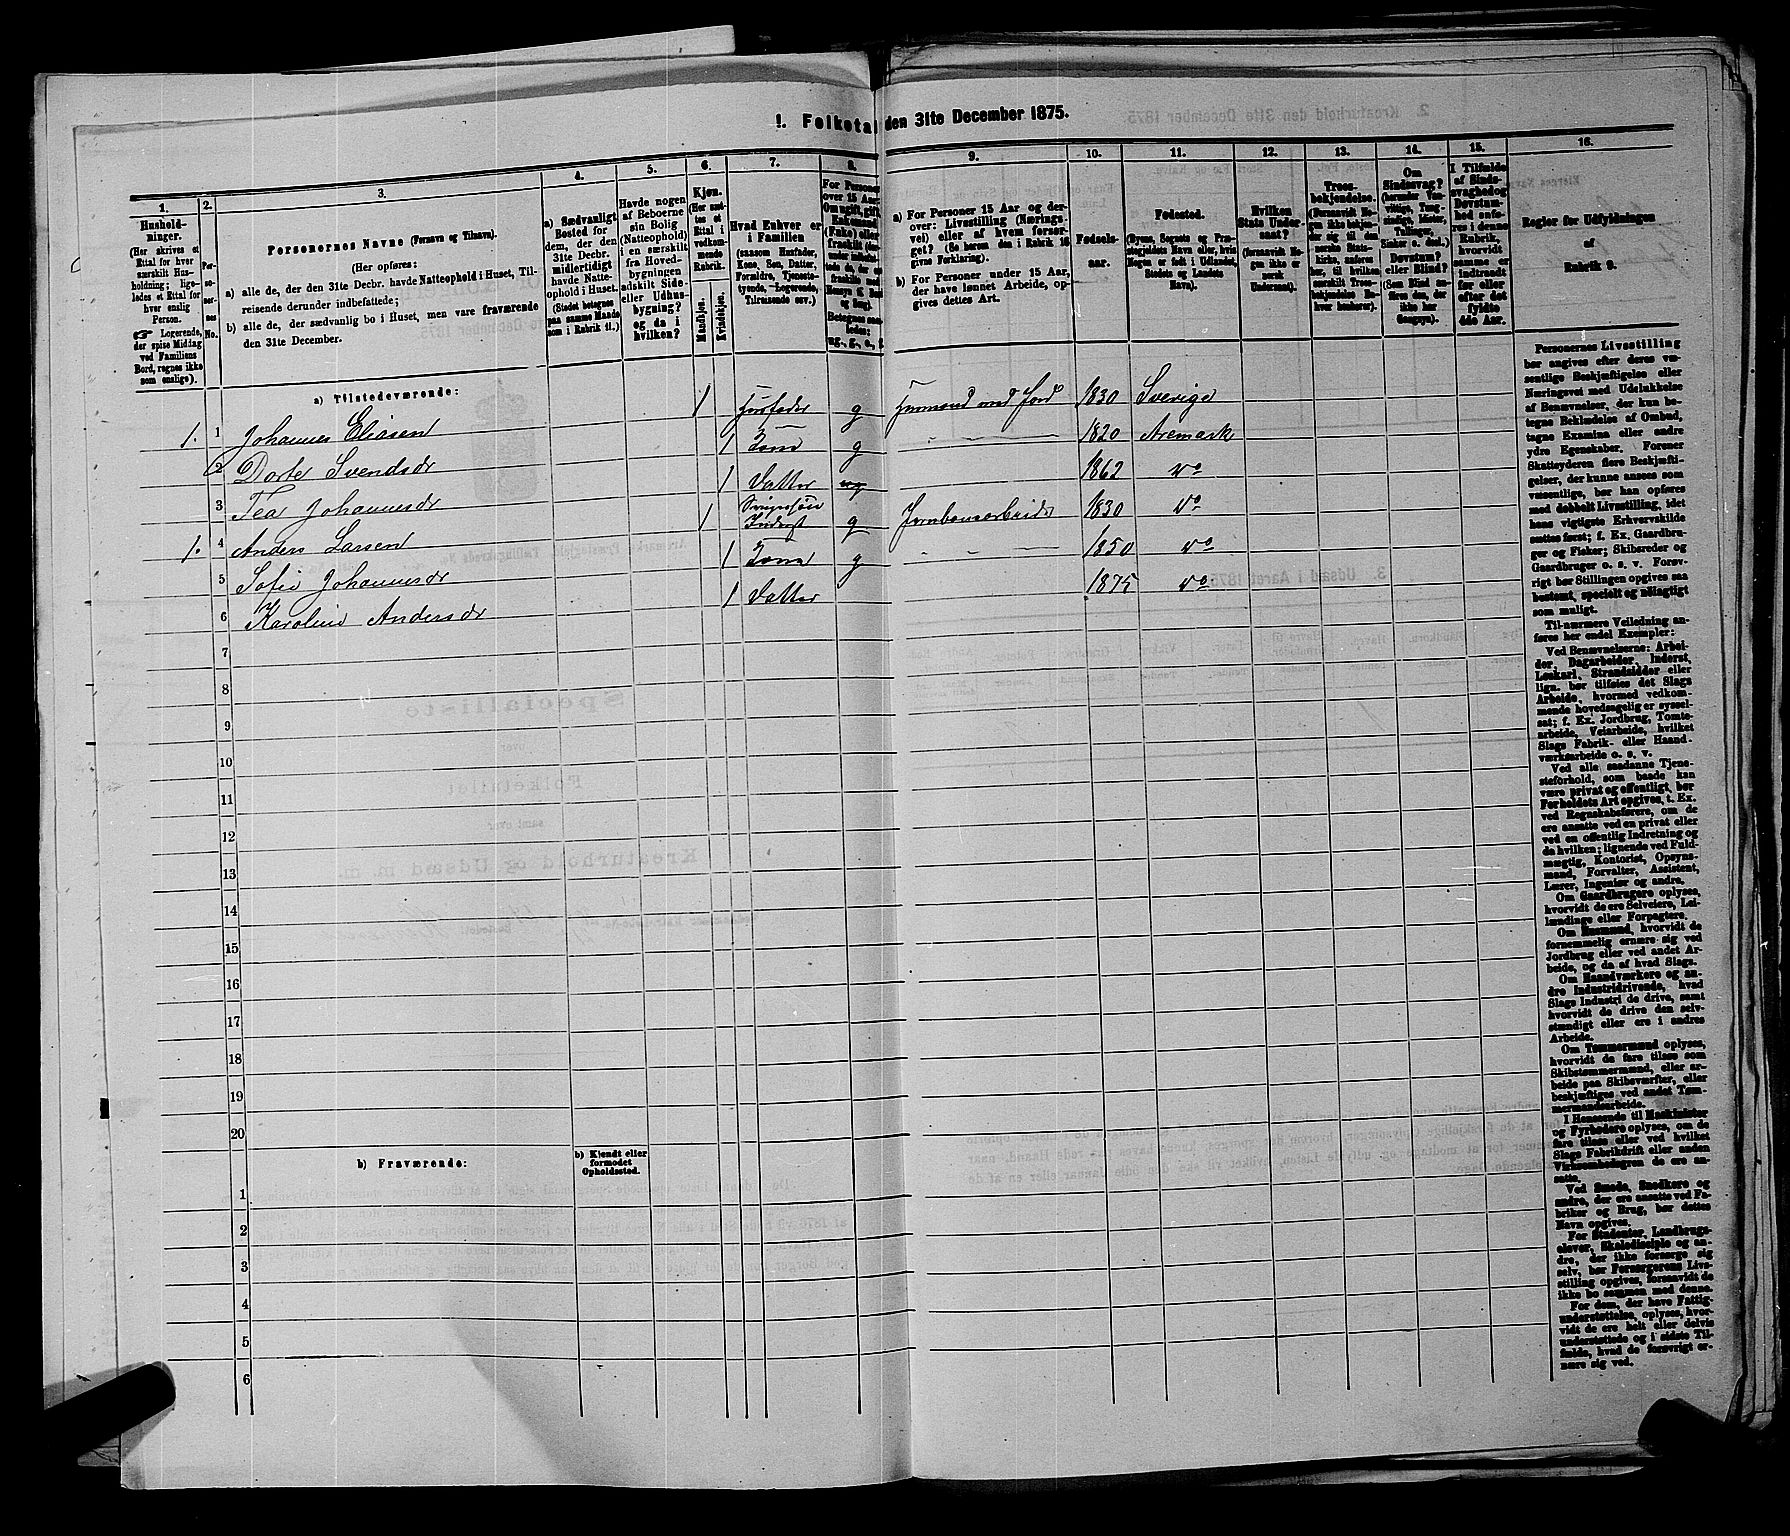 1. Folketal den 31te December 1875.
1. 2. 3. 4. 5. 6. 7. 8. 9. 10. 11. 12. 13. 14. 15. 16.
Hushold-
ninger.
(Her skrives et
Ettal for hver
særskilt Hus-
holdning; lige-
ledes et Ettal for
hver enslig
Person.
☞ Logerende,
der spise Middag
ved Familiens
Bord, regnes ikke
som enslige).
Per-
so-
ner-
nes
No.
Personernes Navne (Fornavn og Tilnavn).
(Her opføres:
a) alle de, der den 31te Decbr. havde Natteophold i Huset, Til-
reisende derunder indbefattede;
b) alle de, der sædvanlig bo i Huset, men vare fraværende
den 31te December.
a) Sædvanligt
Bosted for
dem, der den
31te Decbr.
midlertidigt
havde Natte-
ophold i Huset.
(Stedet betegnes
paa samme Maade
som i Rubrik 11.)
Havde nogen
af Beboerne
sin Bolig
(Natteophold)
i en særskilt
fra Hoved-
bygningen
adskilt Side-
eller Udhus-
bygning?
og da i
hvilken?
Kjøn.
(Her sæt-
tes et
Ettal i
vedkom-
mende
Rubrik.
Mandkjøn.
Kvindekjøn.
Hvad Enhver er
i Familien
(saasom Husfader,
Kone, Søn, Datter,
Forældre, Tjeneste-
tyende, Logerende,
Tilreisende osv.)
For Personer
over 15 Aar:
a) For Personer 15 Aar og der-
over: Livsstilling (Nærings-
vei) eller af hvem forsør-
get? (Se herom den i Rubrik 16
givne Forklaring).
b) For Personer under 15 Aar,
der have lønnet Arbeide, op-
gives dettes Art.
Fødsels-
aar.
Fødested.
(Byens, Sognets og Præ-
stegjeldets Navn eller, hvis
Nogen er født i Udlandet,
Stedets og Landets
Navn).
Hvilken
Stats Under-
saat?
(forsaavidt No-
gen ikke er
norsk
Undersaat).
Troes-
bekjendelse.
(Forsaavidt No-
gen ikke beken-
der sig til den
norske Stats-
kirke, anføres
her, til hvilken
særskilt Troes-
bekjendelse He-
hver henhører).
Om
Sindssvag?
Døvstum?
eller Blind?
(Som Blind an-
føres den, der
ikke har
Gangsyn).
I Tilfælde
af Sinds-
svaghed og
Døvstum-
hed anfø-
res i denne
Rubrik,
hvorvidt
samme er
indtraadt
før eller
efter det
fyldte
4de Aar.
Regler for Udfyldningen
af
Rubrik 9.
a) Tilstedeværende:
1. 1 Johannes Eliasen 1 Husfader g Husmand med Jord 1830 Sverige
2 Dorte Svendsdr 1 Kone g 1820 Aremark
3 Tea Johannesdr 1 Datter ug 1862 do
1. 4 Anders Larsen 1 Svigersøn Inderst g Jernbanearbeider 1830 do
5 Sofie Johannesdr 1 Kone g 1850 do
6 Karoline Andersdr 1 Datter 1875 do
7
8
9
10
11
12
13
14
15
16
17
18
19
20
b) Fraværende:
b) Kjendt eller
formodet
Opholdssted.
1
2
3
4
5
6
Personernes Livsstilling
bør angives efter deres væ-
sentlige Beskjæftigelse eller
Næringsvei med Udelukkelse
af Benævnelser, der kun be-
tegne Beklædelse af Ombud,
tagne Examina eller andre
ydre Egenskaber. Forener
Skatteyderen flere Beskjæfti-
gelser, der kunne ansees som
væsentlige, bør han opføres
med dobbelt Livsstilling, idet
hans vigtigste Erhvervskilde
sættes først; f. Ex. Gaardbru-
ger og Fisker; Skibsreder og
Gaardbruger o. s. v. Forøv-
rigt bør Stillingen opgives saa
bestemt, specielt og nøiagtigt
som muligt.
Til nærmere Veiledning an-
føres her endel Exempler:
Ved Benævnelserne: Arbei-
der, Dagarbeider, Inderst,
Løskarl, Strandsidder eller
lign. bør tilføies det Slags
Arbeide, hvormed vedkom-
mende hovedsagelig er syssel-
sat; f. Ex. Jordbrug, Tomte-
arbeide, Veiarbeide, hvilket
Slags Fabrik- eller Haand-
værksarbeide o. s. v.
Ved alle saadanne Tjene-
steforhold, som baade kan
være privat og offentligt, bør
Forholdets Art opgives, t. Ex.
ved Regnskabsførere, om de
ere ansatte ved en privat eller
ved en offentlig Indretning og
da hvilken; lignende ved Fuld-
mægtig, Kontorist, Opsyns-
mand, Forvalter, Assistent,
Lærer, Ingeniør og andre.
Om Gaardbrugere oplyses,
hvorvidt de ere Selveiere, Lei-
lændinge eller Forpagtere.
Om Husmænd, hvorvidt de
fornemmelig ernære sig ved
Jordbrug eller ved andet Ar-
beide, og da af hvad Slags.
Om Haandværkere og an-
dre Industridrivende, hvad
Slags Industri de drive, samt
hvorvidt de drive den selv-
stændigt eller ere i andres
Arbeide.
Om Tømmermænd oplyses,
hvorvidt de fare tilsøs som
Skibstømmermænd, eller ar-
beide paa Skibsværfter, eller
beskjæftiges ved andet Tøm-
mermandsarbeide.
I Henseende til Maskinister
og Fyrbødere oplyses, om de
fare tilsøs eller ved hvilket
Slags Fabrikdrift eller anden
Virksomhedsgren de ere an-
satte.
Ved Smede, Snedkere og
andre, der ere ansatte ved Fa-
briker og Brug, bør dettes
Navn opgives.
For Studenter, Landbrugs-
elever, Skoledisciple og an-
dre, der ikke forsørge sig
selv, bør Forsørgerens Livs-
stilling opgives, forsaavidt de
ikke bo sammen med denne.
For dem, der have Fattig-
understøttelse, oplyses, hvor-
vidt de ere helt eller delvis
understøttede og i sidste Til-
fælde, hvad de forøvrigt er-
nære sig ved.